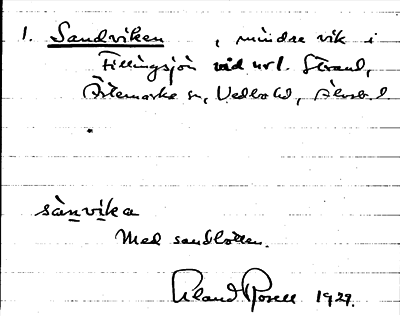 1. Sandviken, mindre vik i
Fillingsjön vid nrl. Strand,
Ärtemarks sn, Vedbo hd, Älvsb. l.
sànvika
Med sandbotten.
Rosell 1929.